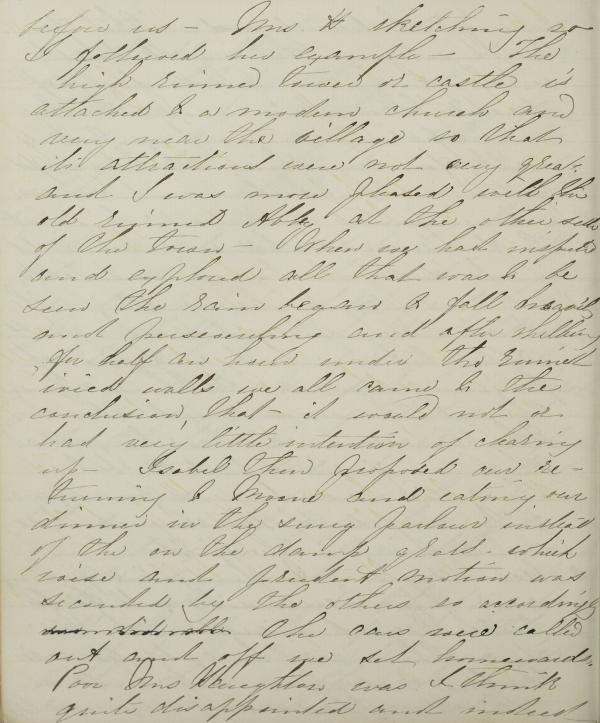 before us – Mrs H sketching so
I followed her example – The
high ruined tower or castle is
attached to a modern church and
very near the village so that
its attractions were not very great
and I was more pleased with the
old ruined Abbey at the other side
of the town – When we had inspected
and explored all that was to be
seen the rain began to fall heavily
and perseveringly and after
for half an hour under the ruined
ivied walls we all came to the
conclusion, that it would not or
had very little intention of clearing
up – Isabel then proposed our re-
turning to Moone and eating our
dinner in the snug parlour instead
of the on the damp grass – which
wise and prudent motion was
seconded by the others so accordingly
the cars were called
out and off we set homewards.
Poor Mrs Haughton was I think
quite disappointed and indeed